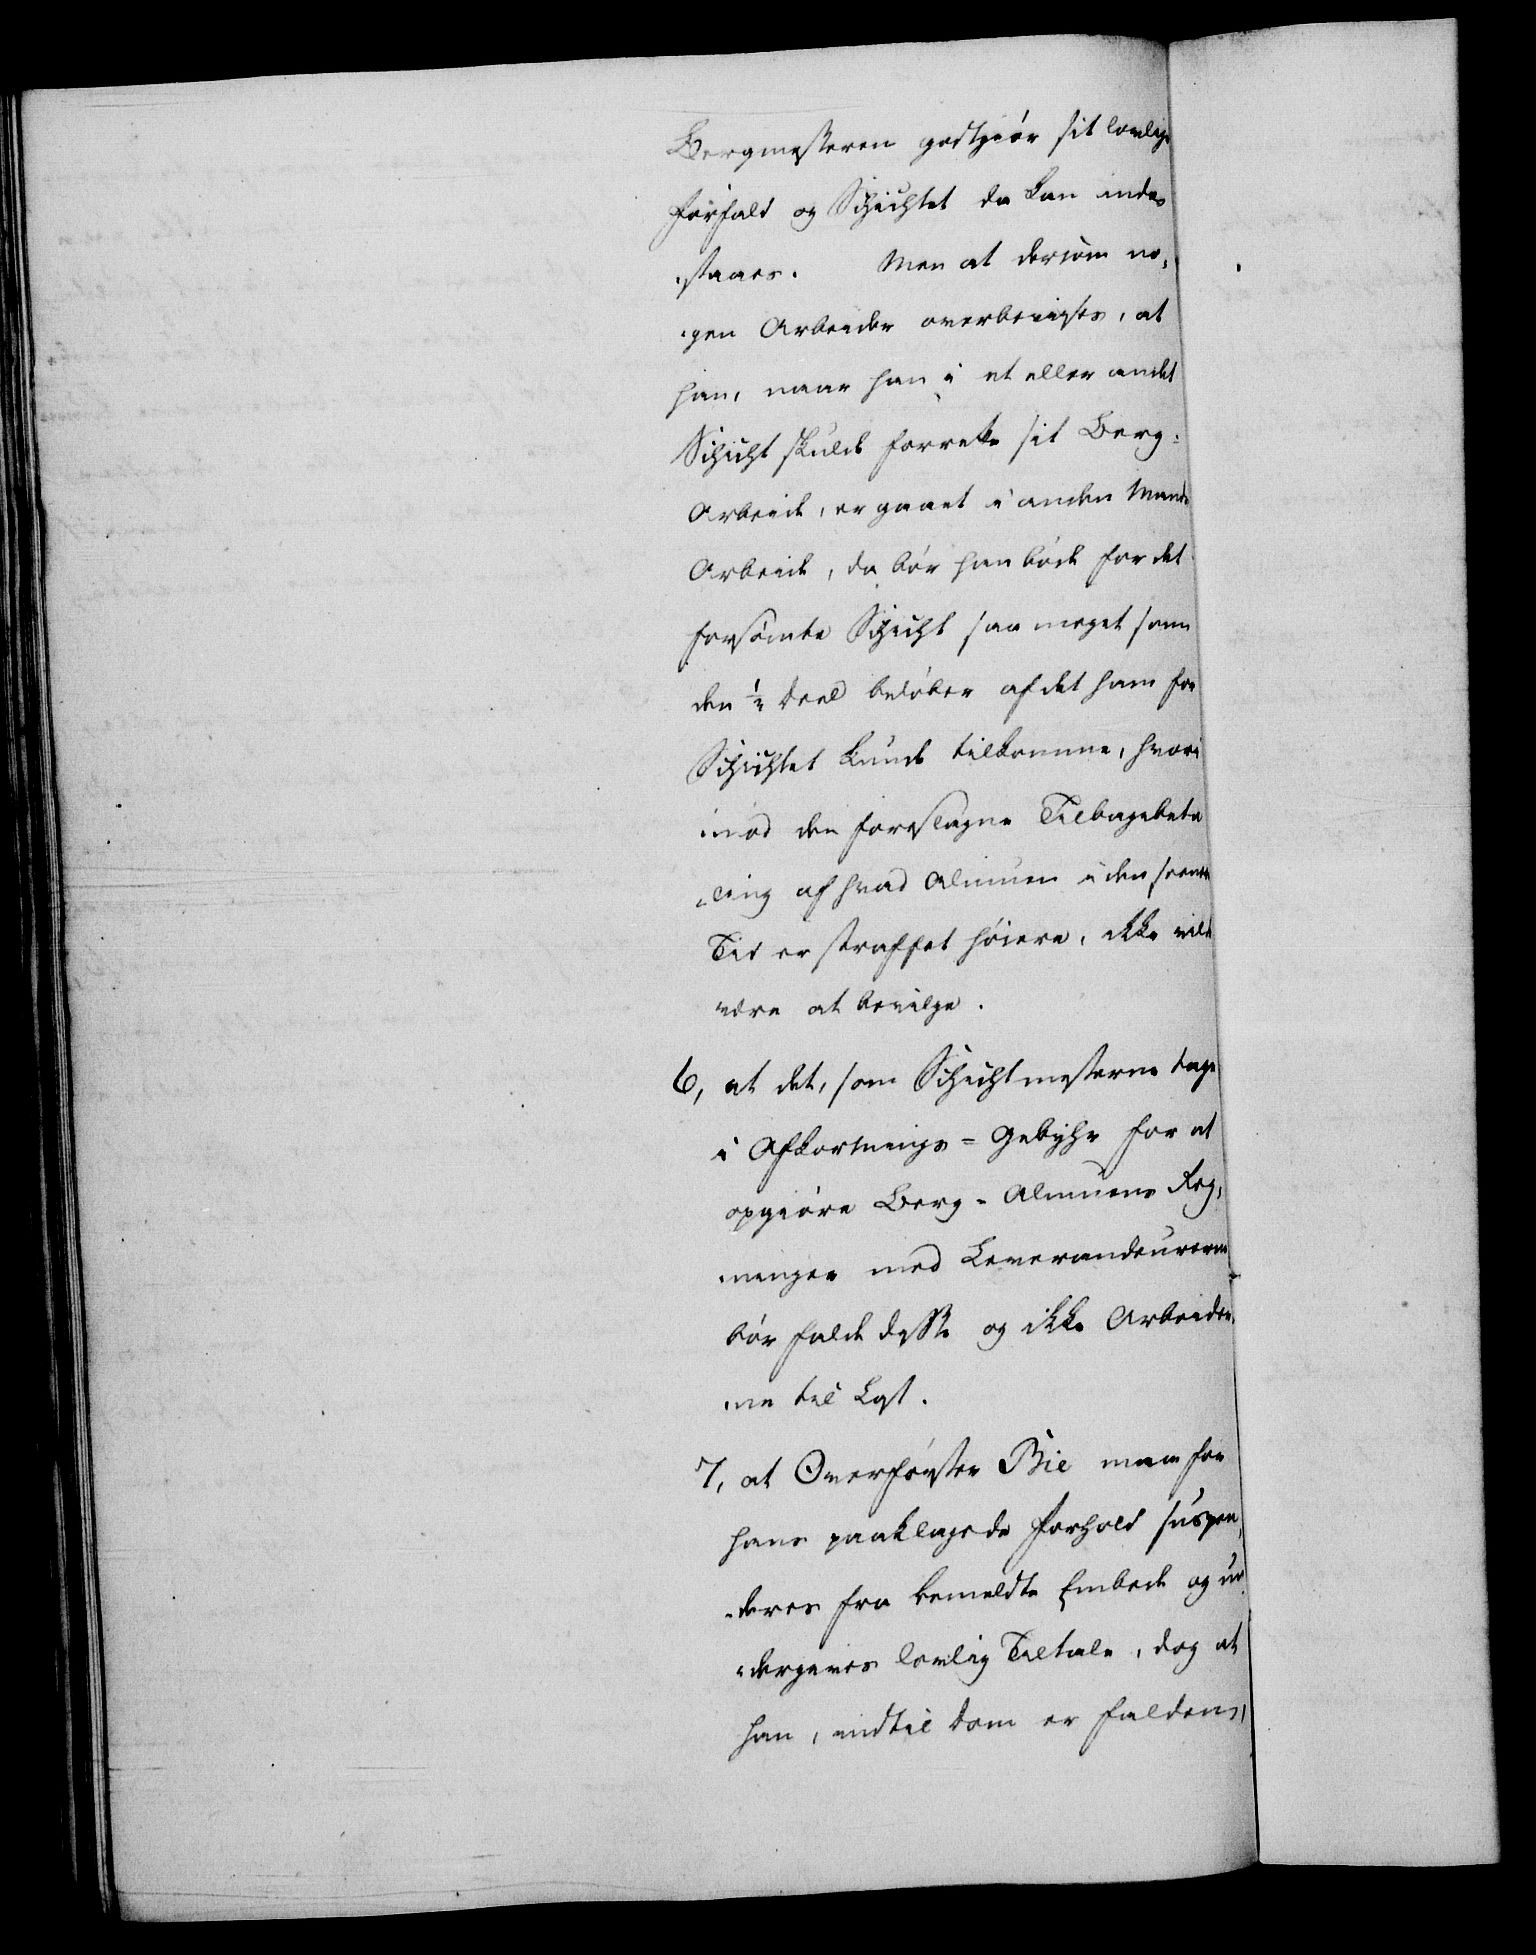 Bergmesteren godtgiør sit lovlige
forfald og Schichtet da kan inde¬
„staaes. Men at dersom no„
„gen Arbeider overbeviises, at
han, naar han i et eller andet
Schicht skulde forrette sit Berg=
Arbeide, er gaaet i anden Mands
Arbeide, da bør han bøde for det
forsømte Schicht saa meget som
den ½ Deel beløber af det ham for
Schichtet kunde tilkomme, hvori
„mod den foreslagne Tilbagebeta
„ling af hvad Almuen i den seenere
Tid er straffet høiere, ikke vilde
være at bevilge.
6, at det, som Schichtmesterne tage
i Afkortnings=Gebyhr for at
opgiøre Berg-Almuens Reg„
„ninger med Leverandeurerne
bør falde disse og ikke Arbeider„
„ne til Last.
7, at Overførster Bie maae for
hans paaklagede Forhold suspen„
„deres fra bemeldte Embede og un„
„dergives lovlig Tiltale, dog at
han, indtil Dom er falden,